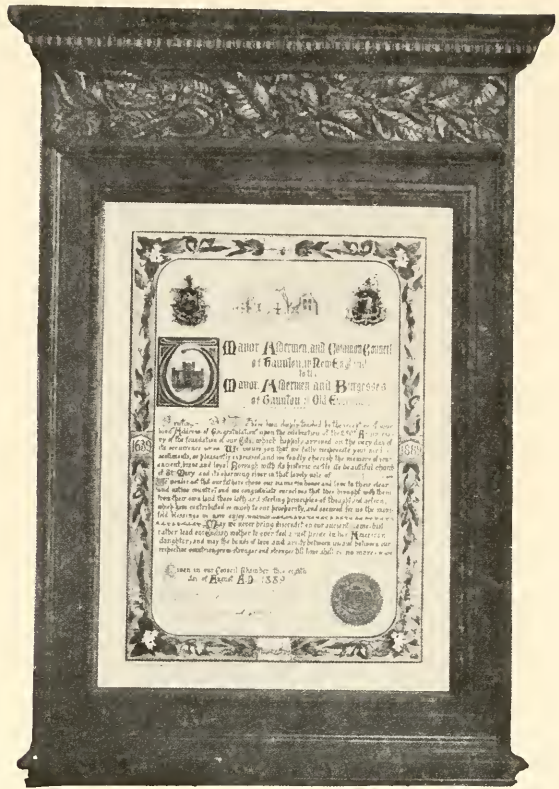 Mayor, Aldermen, and Common Council
of Taunton, in New England
to the
Mayor, Aldermen and Burgesses
of Taunton in Old
Greeting. have been deeply touched by the
Address of Congratulation upon the celebration of the 250th
of the foundation of our City, which happily arrived on the very day of
its occurrence. We assure you that we fully reciprocate your
sentiments, so pleasantly expressed, and we fondly cherish the memory of your
ancient, brave and loyal Borough with its historic castle its beautiful church
of St Mary and its charming river in that lovely vale of
of the world have chose our name to honor and love to their dear
native country and we congratulate ourselves that they brought with them
from their own land those lofty and sterling principles of thought and action,
which have contributed so much to our prosperity, and secured for us the many
fold blessings we now enjoy
May we never bring discredit on our ancient name but
rather lead our mother to ever feel a just pride in her American
daughter, and may the bonds of love and amity between us and between our
respective countries grow stronger and stronger till time shall be no more
1639
1889
Given in our Council Chamber this eighth
day of August A.D. 1889